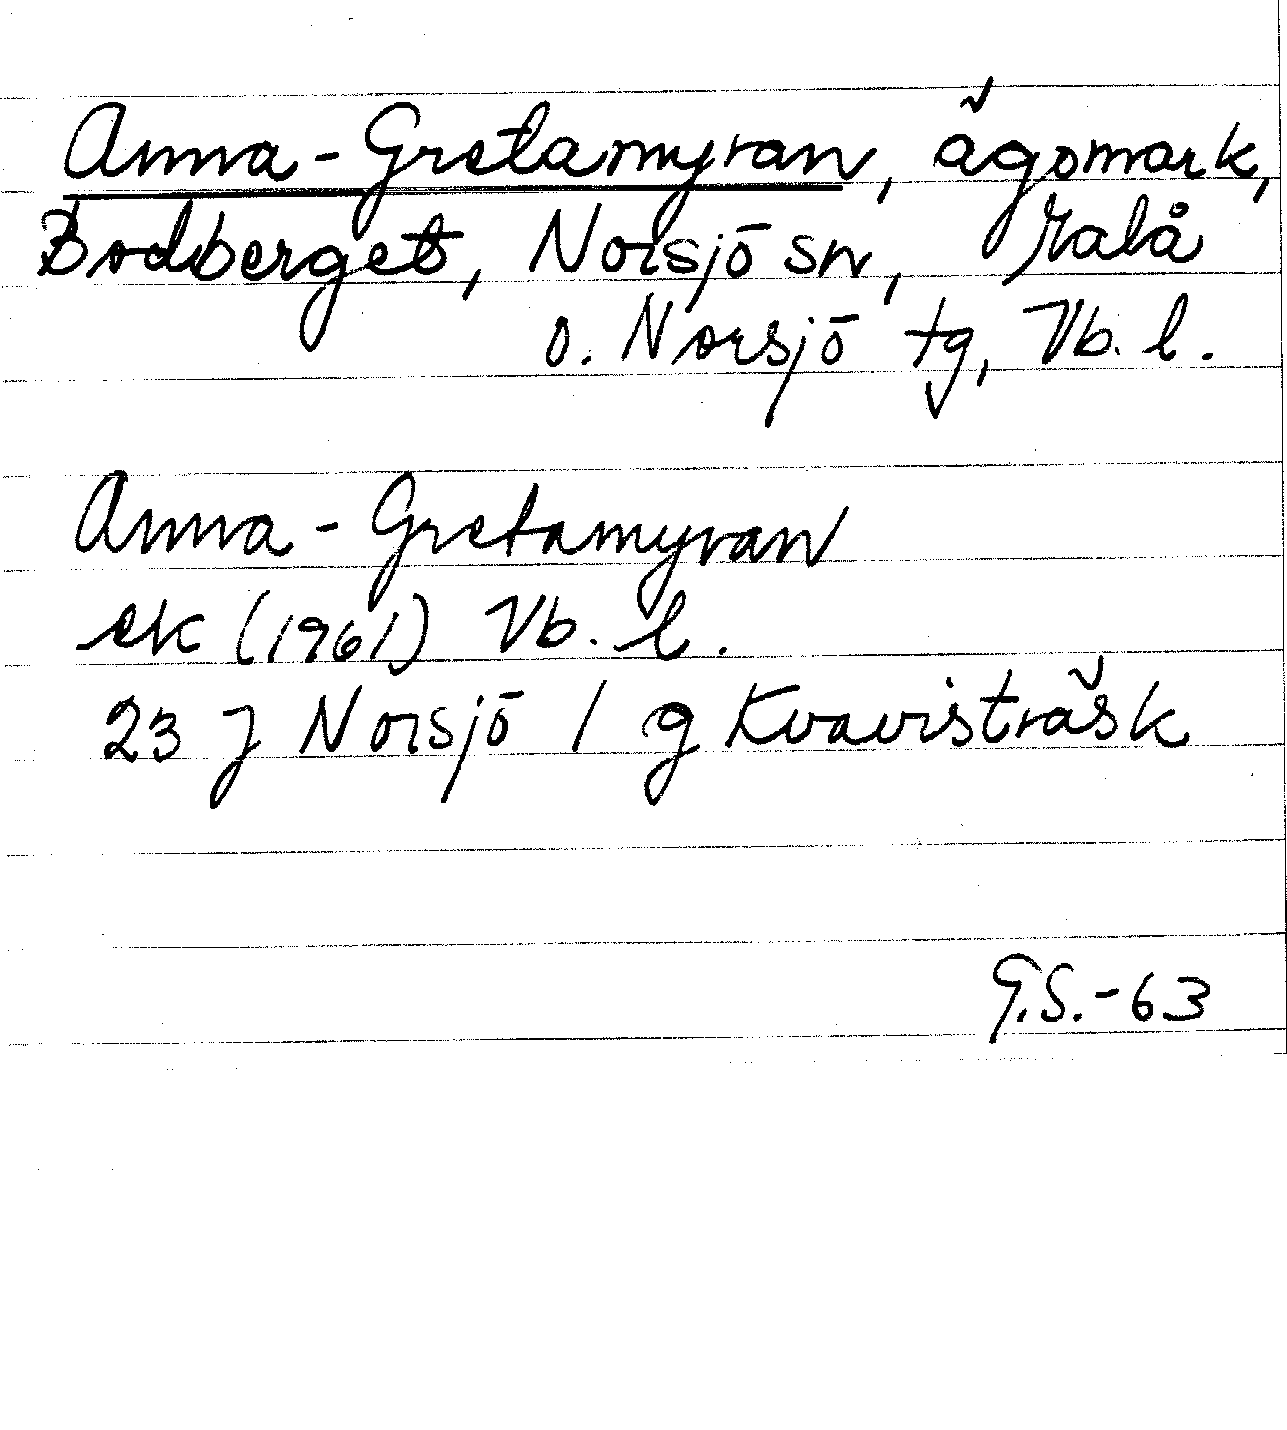 Anna-Gretamyran, ägomark,
Bodberget, Norsjö sn, Malå
o. Norsjö tg, Vb. l.
Anna-Gretamyran
ek (1961) Vb. l.
23 J Norsjö / g Kvavisträsk
G.S.-63